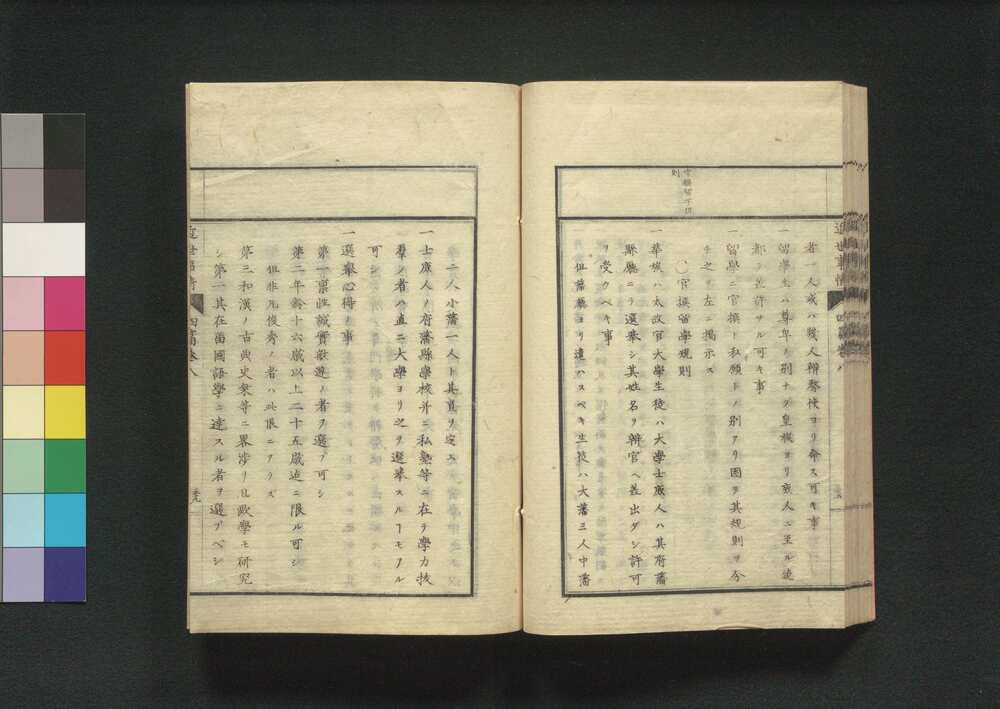 者一人或ハ幾人辨務使ヨリ命ス可キ事
一留學生ハ尊卑ノ別ナク皇族ヨリ庶人ニ至ル迄
都テ差許サル可キ事
一留學ニ官撰ト私願トノ別アリ因テ其規則ヲ今
之ヲ左ニ掲示ス
〇官撰留學規則
一華族ハ太政官大學生徒ハ大學士庶人ハ其府藩
縣廳ニテ選擧シ其姓名ヲ辨官ヘ差出シ許可
ヲ受クベキ事
但藩廳ヨリ遣ハスベキ生徒ハ大藩三人中藩
第二人小藩一人ト其員ヲ定ム
一士庶人ノ府藩縣學校并ニ私塾等ニ在テ學力抜
羣ノ者ハ直ニ大學ヨリ之ヲ選擧スル事モアル
可シ
一選擧心得ノ事
第一禀性誠實敢遊ノ者ヲ選ブ可シ
第二年齡十六歳以上二十五歳迄ニ限ル可シ
但非凢俊秀ノ者ハ此限ニアラズ
第三和漢ノ古典史衆等ニ畧渉リ且歐學モ研究
シ第一其在留國語學ニ達スル者ヲ選ブベシ
四篇巻八